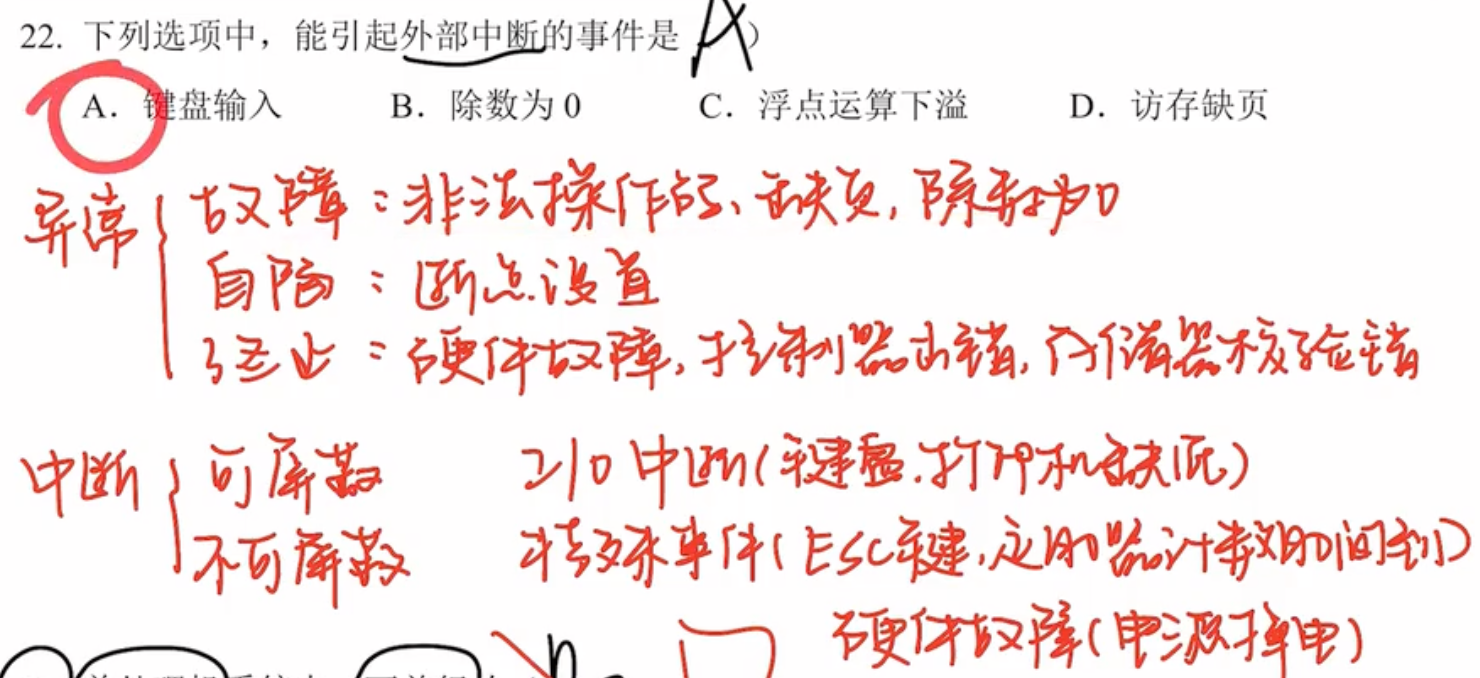 22. 下列选项中，能引起外部中断的事件是 A）
A．键盘输入 B．除数为 0 C．浮点运算下溢 D．访存缺页
异常 故障：非法操作码、缺页，除数为0
自陷：断点设置
终止：硬件故障，控制器出错，存储器校验错
中断 可屏蔽 I/O中断（键盘.打印机缺纸）
不可屏蔽 特殊事件（ESC键,定时器计数时间到）
硬件故障（电源掉电）